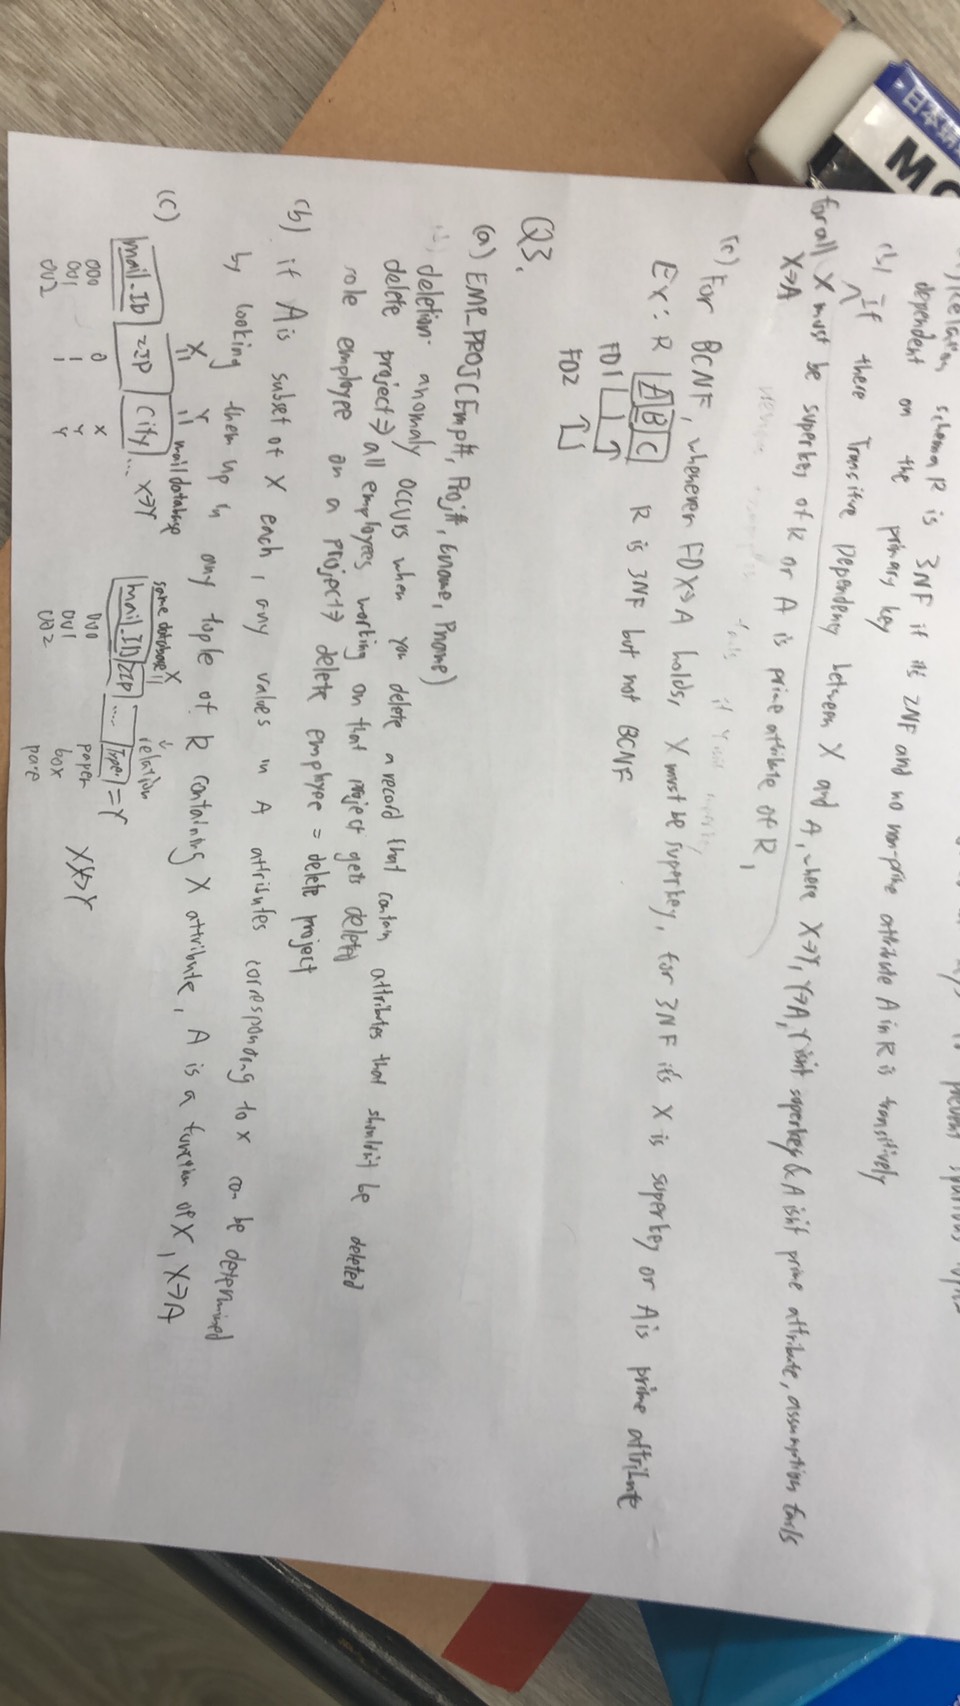 to prevent spurious
Relation schema R is 3NF if it's 2NF and no non-prime attribute A in R is transitively
dependent on the primary key
(b) If there Transitive Dependency between X and A, where X→Y, Y→A, Y isn't superkey & A isn't prime attribute, assumption fails
for all X must be superkey of R or A is prime attribute of R,
X→A
fails if Y
(c) For BCNF, whenever FD X→A holds, X must be superkey, for 3NF it's X is superkey or A is prime attribute
Ex: R A B C R is 3NF but not BCNF
FD1
FD2
Q3.
(a) EMP_PROJ(Emp#, Proj#, Ename, Pname)
deletion anomaly occurs when you delete a record that contain attributes that shouldn't be deleted
delete project ⇒ all employees working on that project gets deleted
role employee on a project ⇒ delete employee = delete project
(b) if A is subset of X each, any values in A attributes corresponding to X can be determined
by looking them up in any tuple of R containing X attribute, A is a function of X, X→A
(c) X Y mail database
mail_ID ZIP City ... X→Y
000 0 X
001 1 Y
002 1 Y
same database X relation
mail_ID ZIP .... Type = Y
000 paper
001 box
002
X↛Y
日本
MO